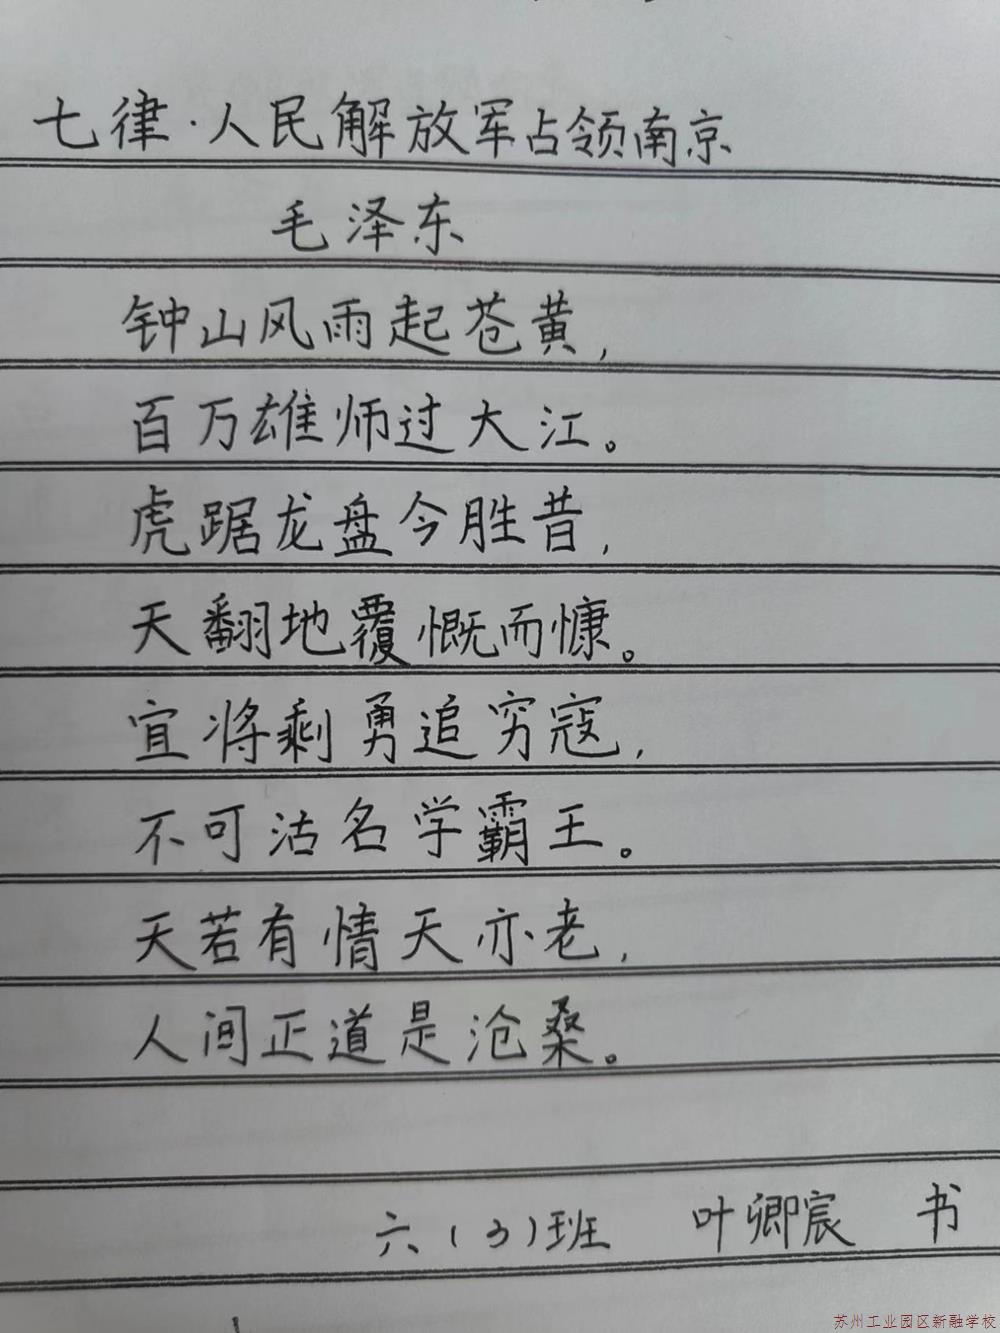 七律·人民解放军占领南京
毛泽东
钟山风雨起苍黄,
百万雄师过大江。
虎踞龙盘今胜昔,
天翻地覆慨而慷。
宜将剩勇追穷寇,
不可沽名学霸王。
天若有情天亦老,
人间正道是沧桑。
六(3)班 叶卿宸 书
苏州工业园区新融学校